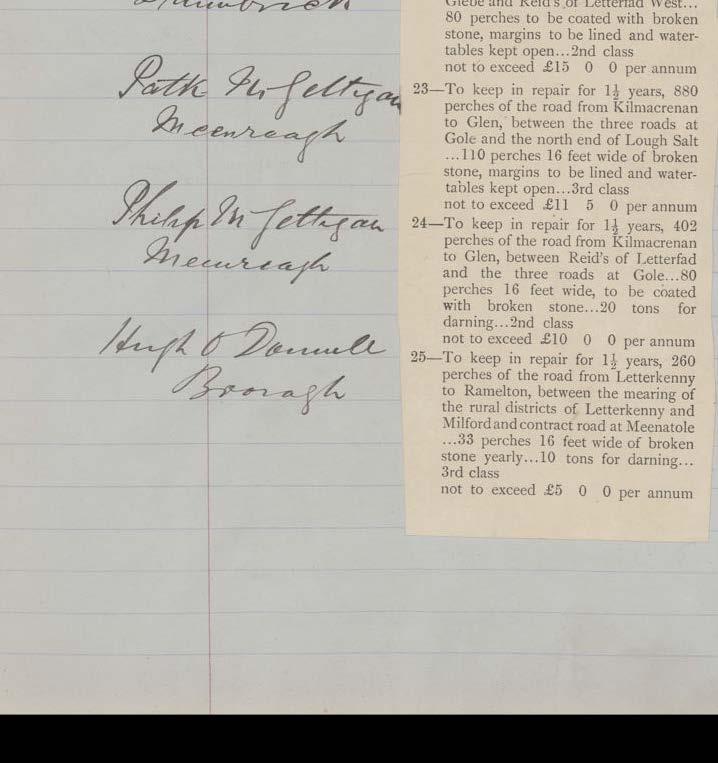 Drumbrick
Patk McGettigan
Meenreagh
Philip McGettigan
Meenreagh
Hugh O Donnell
Glebe and Reid's of Letterfad West...
80 perches to be coated with broken
stone, margins to be lined and water-
tables kept open...2nd class
not to exceed £15 0 0 per annum
23—To keep in repair for 1½ years, 880
perches of the road from Kilmacrenan
to Glen, between the three roads at
Gole and the north end of Lough Salt
...110 perches 16 feet wide of broken
stone, margins to be lined and water-
tables kept open...3rd class
not to exceed £11 5 0 per annum
24—To keep in repair for 1½ years, 402
perches of the road from Kilmacrenan
to Glen, between Reid's of Letterfad
and the three roads at Gole...80
perches 16 feet wide, to be coated
with broken stone...20 tons for
darning...2nd class
not to exceed £10 0 0 per annum
25—To keep in repair for 1½ years, 260
perches of the road from Letterkenny
to Ramelton, between the mearing of
the rural districts of Letterkenny and
Milford and contract road at Meenatole
...33 perches 16 feet wide of broken
stone yearly...10 tons for darning...
3rd class
not to exceed £5 0 0 per annum